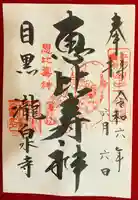 奉拝
令和六年
六月六日
恵比寿神
恵比寿神
目黒 瀧泉寺